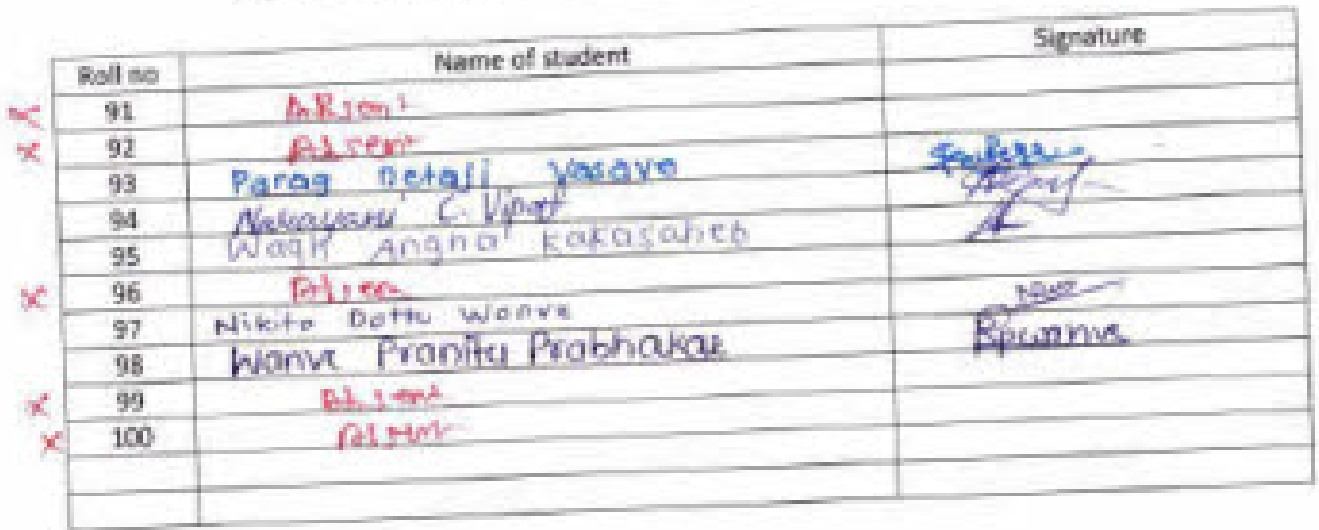 Roll no Name of student Signature
x 91 Absent
x 92 Absent
93 Parag Netaji Vasave
94 C.
95 Wagh Angha Kakasaheb
x 96 Absent
97 Nikita Dattu Wanve
98 Wanve Pranita Prabhakar Bpwanve
x 99 Absent
x 100 Absent